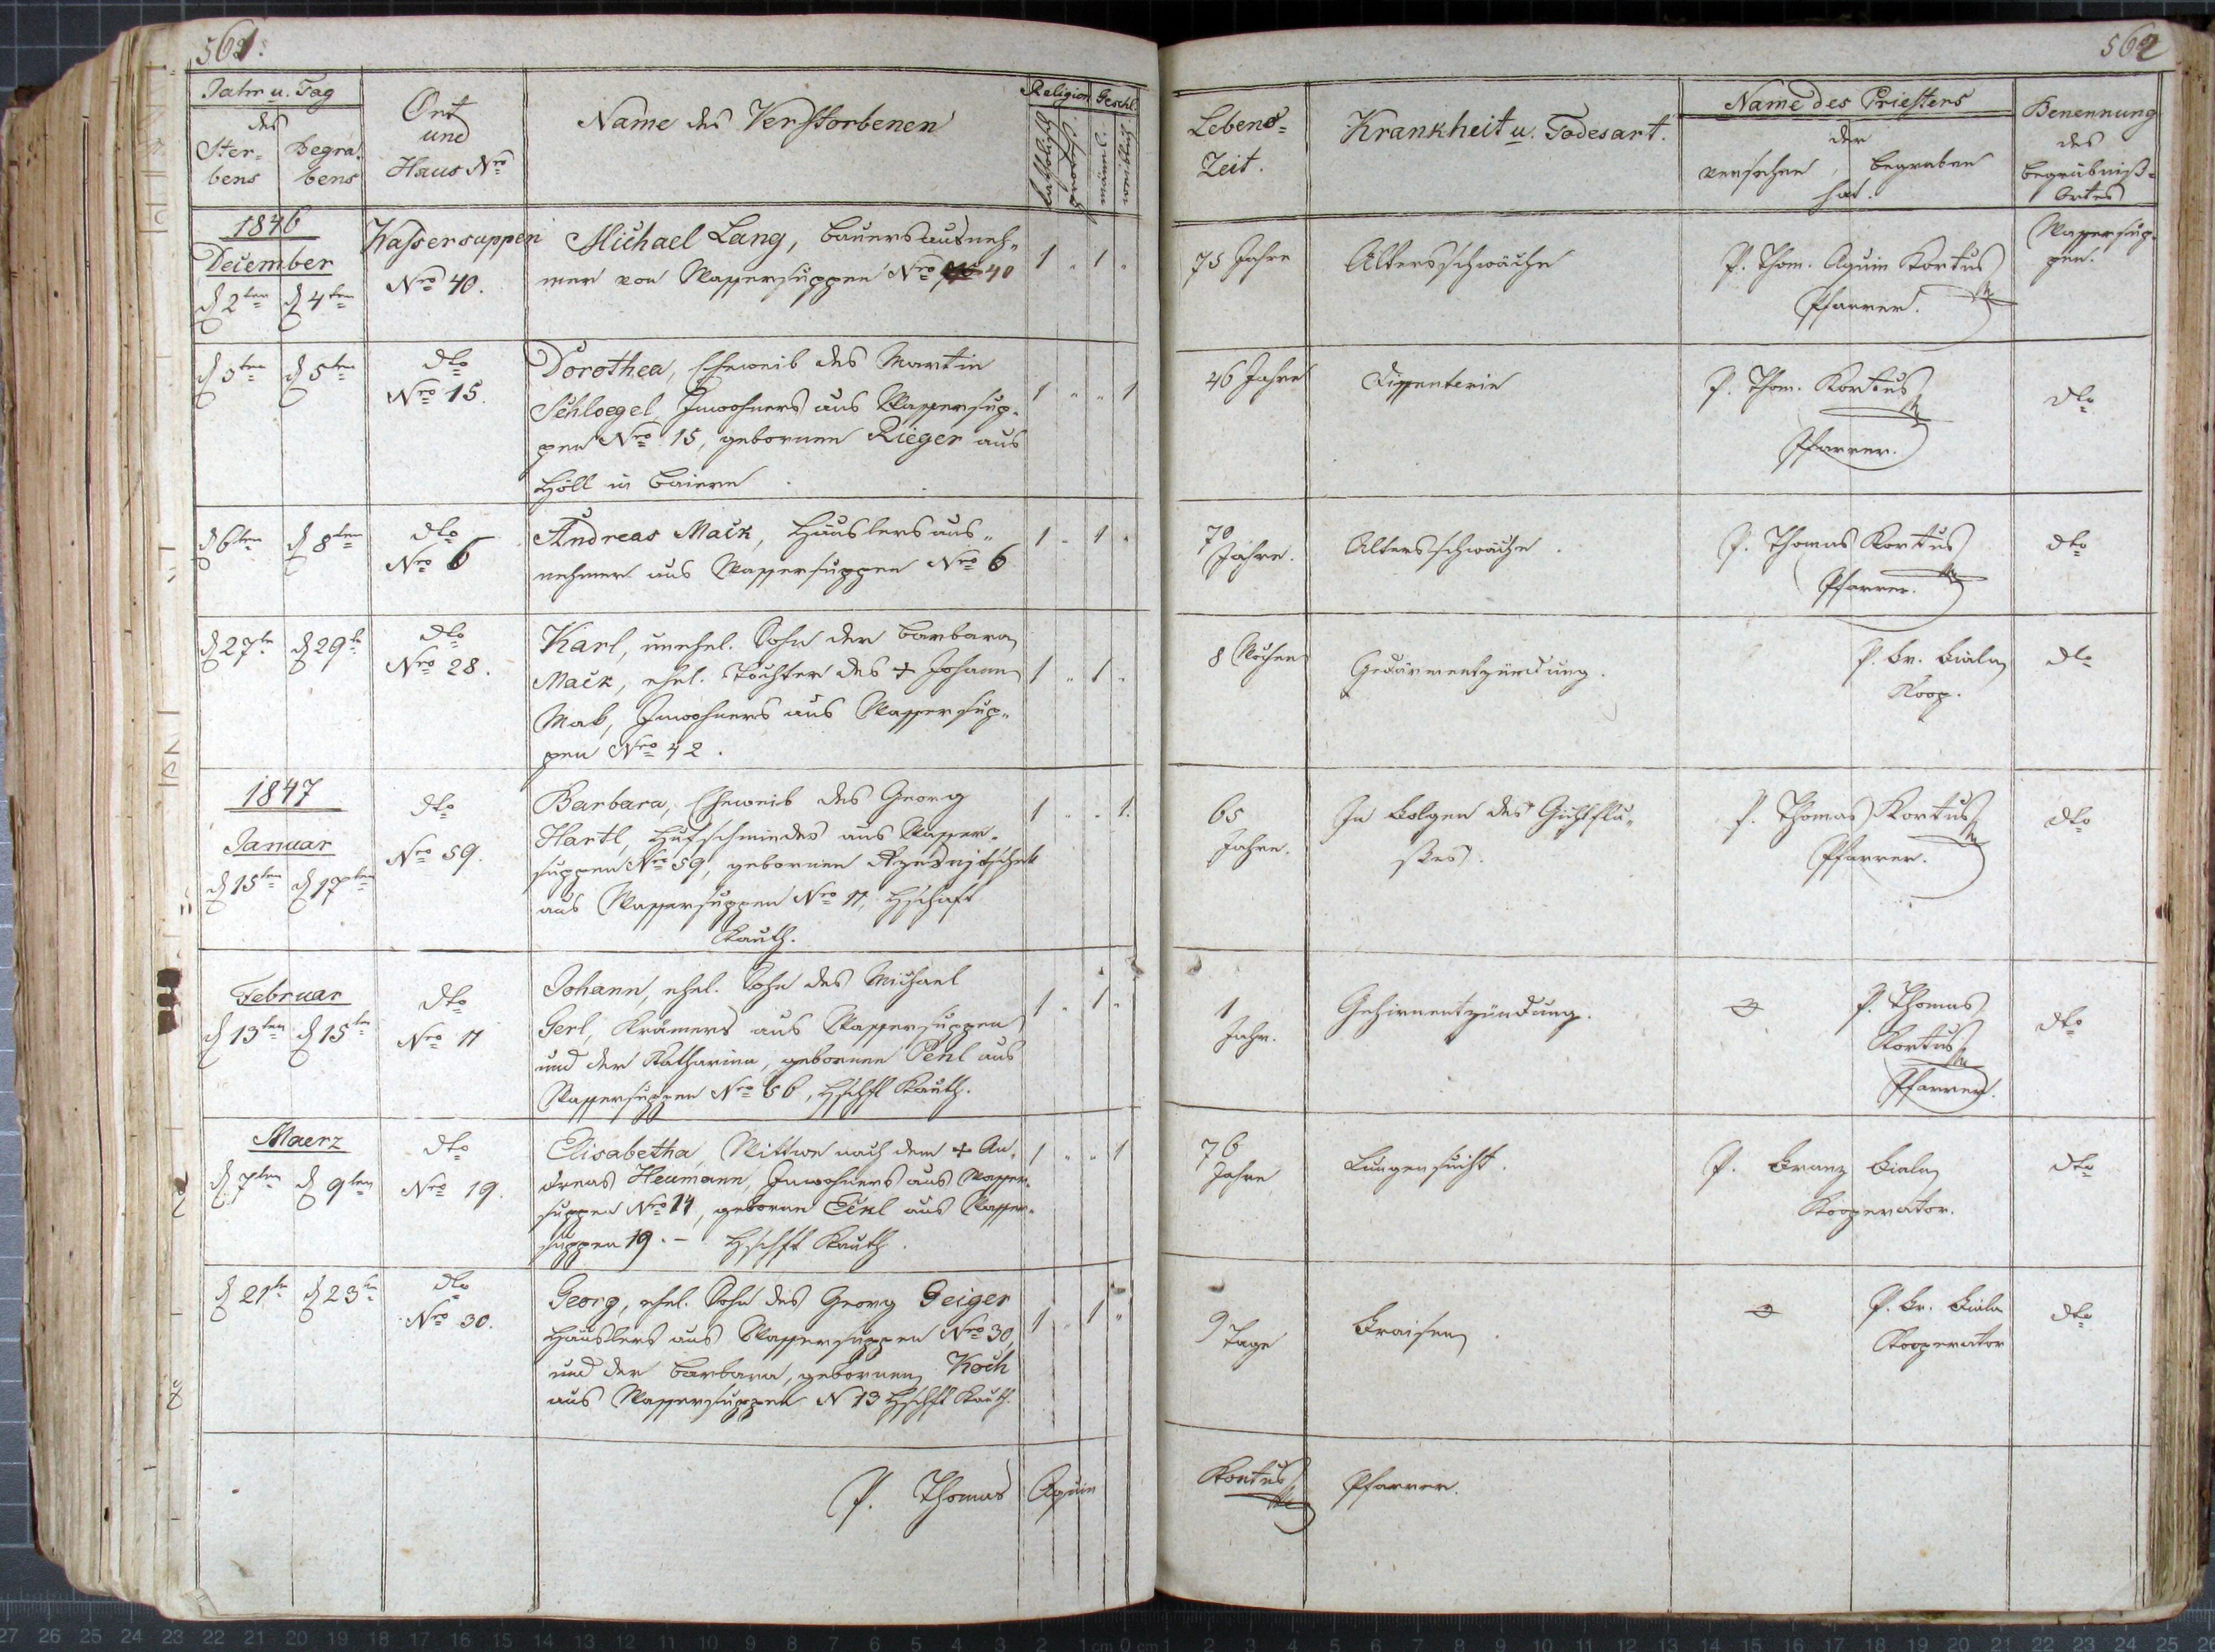 561.
Jahr u. Tag
des
Ster=
bens
Begrä=
bens
Ort
und
Haus Nro
Name des Verstorbenen
Religion
katholisch
Geschl.
männl.
weibl.
1846
December
d 2ten
d 4ten
Wassersuppen
Nro 40.
Michael Lang, Bauersausneh=
mer von Wassersuppen Nro 40
1 " 1 "
d 3ten
d 5ten
dto
Nro 15.
Dorothea, Eheweib des Martin
Schloegel, Inwohners aus Wassersup=
pen Nro 15, gebornen Rieger aus
Höll in Baiern
1 " " 1
d 6ten
d 8ten
dto
Nro 6
Andreas Mack, Häuslersaus=
nehmer aus Wassersuppen Nro 6
1 " 1 "
d 27te
d 29te
dto
Nro 28.
Karl, unehel. Sohn der Barbara
Mack, ehel. Tochter des + Johann
Mak, Inwohners aus Wassersup=
pen Nro 42.
1 " 1 "
1847
Januar
d 15ten
d 17ten
dto
Nro 59.
Barbara, Eheweib des Georg
Hartl, Hufschmiedes aus Wasser=
suppen Nro 59, gebornen
aus Wassersuppen Nro 17, Hschaft
Kauth.
1 " " 1.
Februar
d 13ten
d 15ten
dto
Nro 17
Johann, ehel. Sohn des Michael
Gerl, Krämers aus Wassersuppen
und der Katharina, gebornen Penl aus
Wassersuppen Nro 56, Hschft Kauth.
1 " 1 "
Maerz
d 7ten
d 9ten
dto
Nro 19.
Elisabetha, Wittwe nach dem + An=
dreas Heumann, Inwohners aus Wasser=
suppen Nro 14, geborne Eckl aus Wasser=
suppen 19. - Hschft Kauth.
1 " " 1
d 21te
d 23te
dto
Nro 30.
Georg, ehel. Sohn des Georg Geiger
Häuslers aus Wassersuppen Nro 30,
und der Barbara, gebornen Koch
aus Wassersuppen N 13 Hschft Kauth.
1 " 1 "
P. Thomas Aquin
562
Lebens=
Zeit.
Krankheit u. Todesart.
Name des Priesters
der
versehen, begraben
hat.
Benennung
des
Begräbniß=
Ortes
75 Jahre
Altersschwäche
P. Thom. Aquin Kortus
Pfarrer.
Wassersup=
pen.
46 Jahre
Dissenterie
P. Thom. Kortus
Pfarrer.
dto
70
Jahre.
Altersschwäche.
P. Thomas Kortus
Pfarrer.
dto
8 Wochen
Gedärmentzündung.
P. Fr. Fiala
Koop.
dto
65
Jahre.
In Folgen des Gichtflu=
ßes.
P. Thomas Kortus
Pfarrer.
dto
1
Jahr.
Gehirnentzündung.
P. Thomas
Kortus
Pfarrer.
dto
76
Jahre
Lungensucht.
P. Franz Fiala
Kooperator.
dto
9
Tage
Fraisen.
P. Fr. Fiala
Kooperator
dto
Kortus Pfarrer.